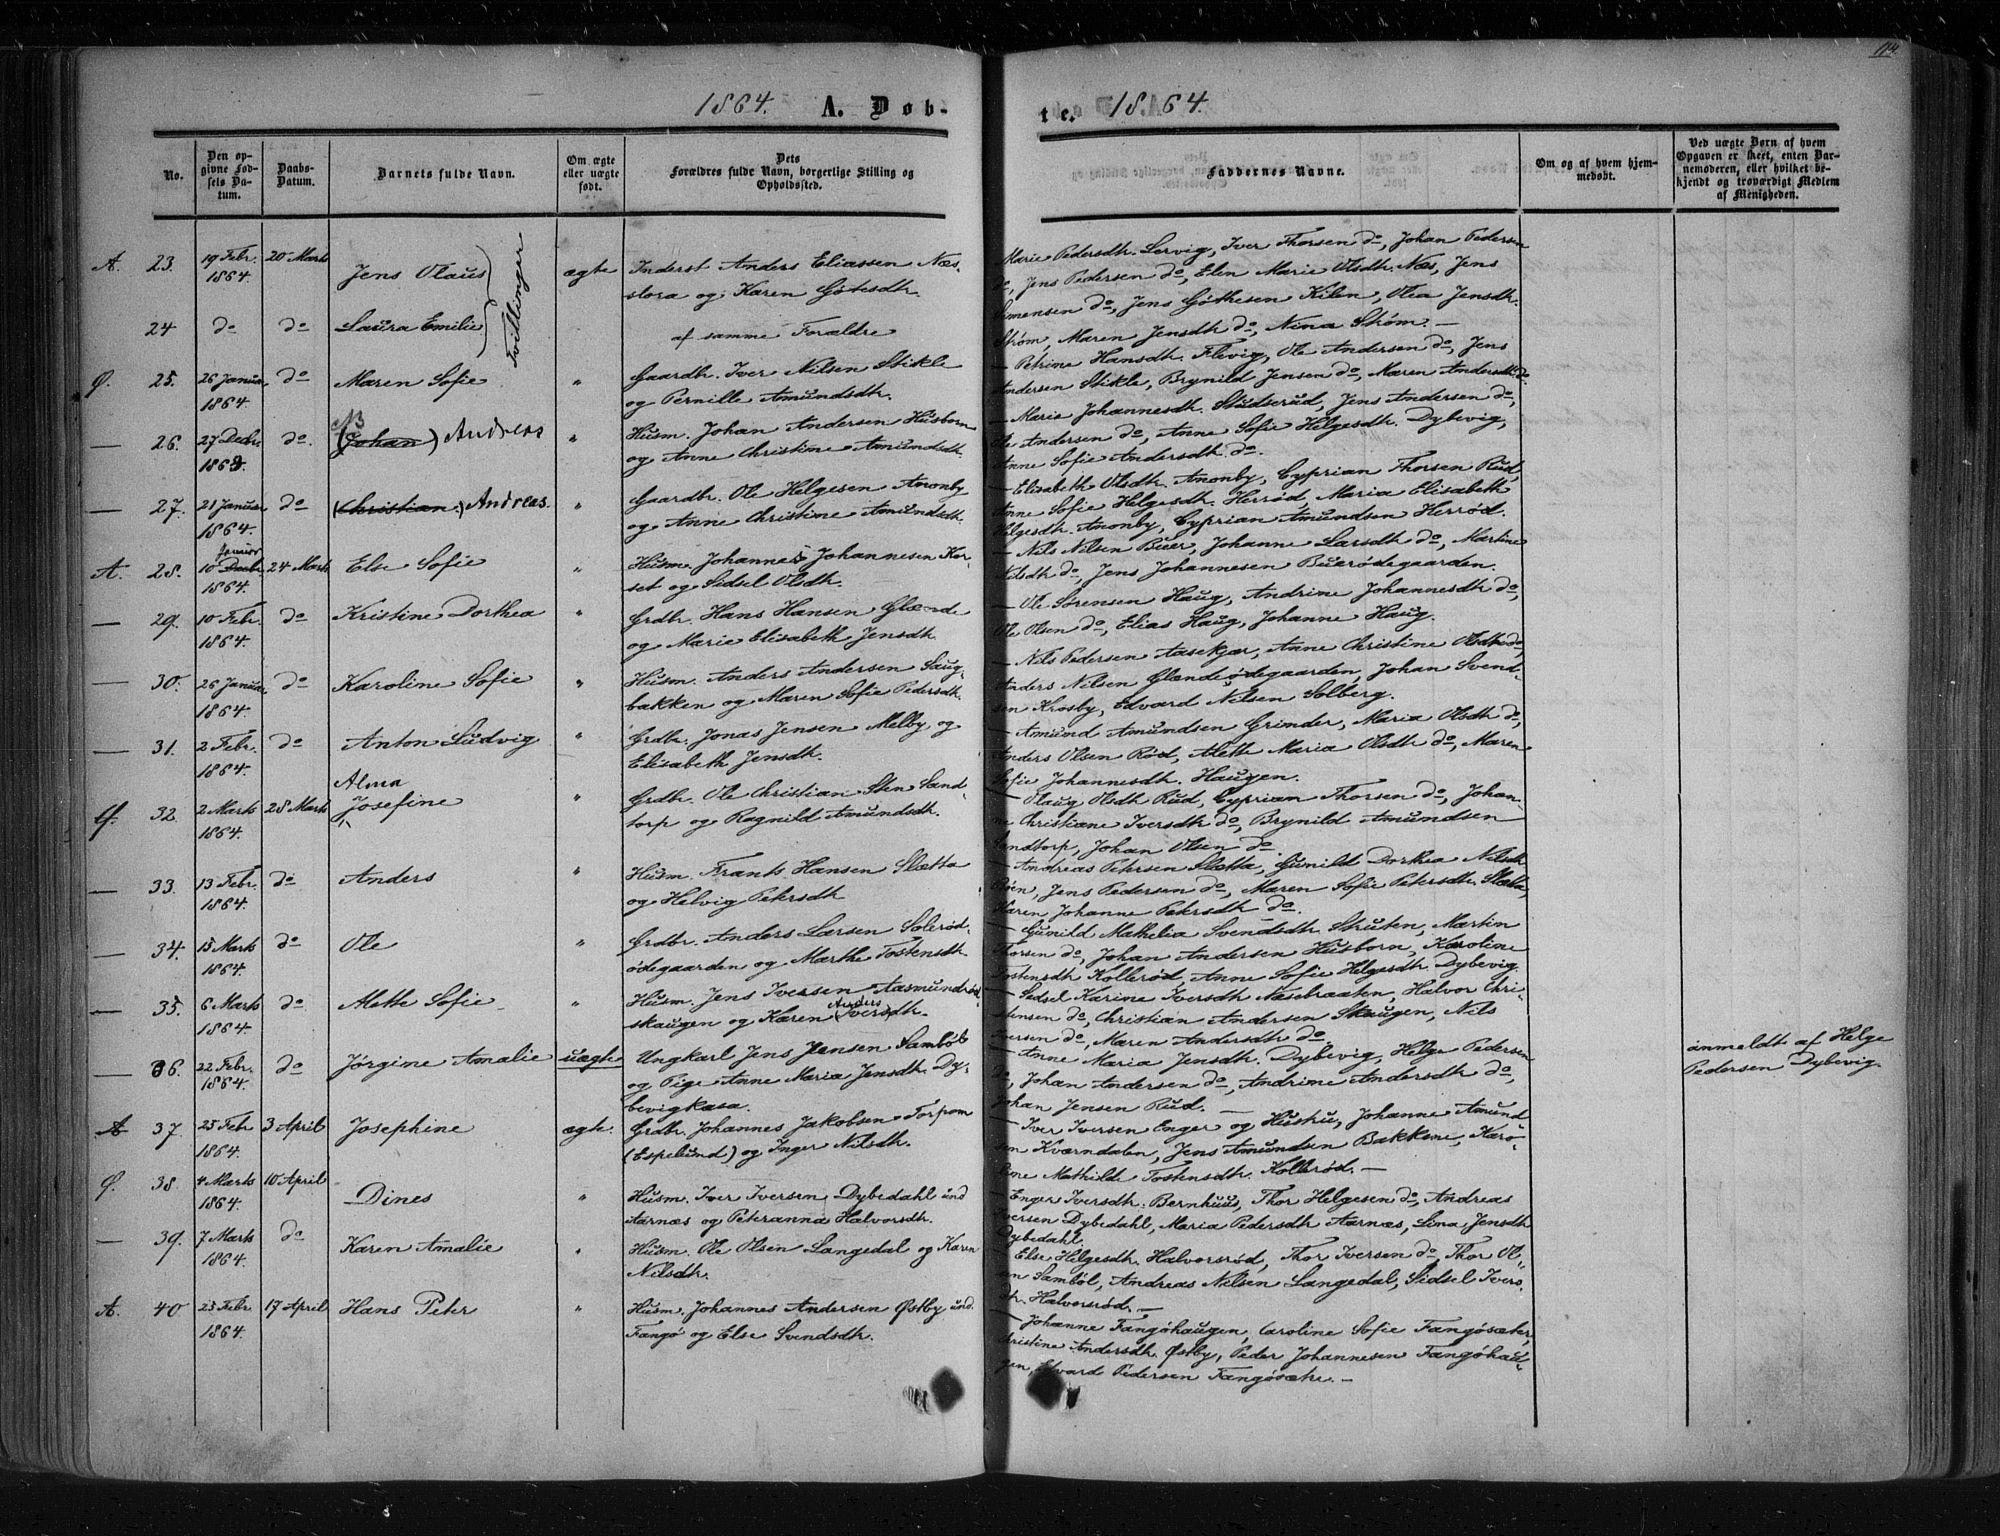 1864. A. Døb-
No.
Den opgivne Fødsels Datum.
Daabs-Datum.
Barnets fulde Navn.
Om ægte eller uægte født.
Dets Forældres fulde Navn, borgerlige Stilling og Opholdssted.
A. 23. 19 Febr. 1864. 20 Marts Jens Olaus ægte Inderst Anders Eliassen Næs-
stora og Karen Götesdtr.
Tvillinger
24 do do Laura Emilie af samme Forældre
Ø. 25. 26 Januar 1864. do Maren Sofie " Gaardbr. Iver Nilsen Stikle
og Pernille Amundsdtr.
— 26. 27 Decbr. 1863. do. (Johan) Andreas " Husm. Johan Andersen Husborn
og Anne Christine Amundsdtr.
— 27. 21 Januar 1864. do (Christian) Andreas. " Gaardbr. Ole Helgesen Anonby
og Anne Christine Amundsdtr.
A. 28. 10 Decbr. Januar 1864. 24 Marts Else Sofie " Husm. Johannes Johannesen Kor-
set og Sidsel Olsdtr.
— 29. 10 Febr. 1864. do Kristine Dorthea " Grdbr. Hans Hansen Glænde
og Marie Elisabeth Jensdtr.
— 30. 26 Januar 1864. do Karoline Sofie " Husm. Anders Andersen Saug-
bakken og Maren Sofie Pedersdtr.
— 31. 2 Febr. 1864. do Anton Ludvig " Grdbr. Jonas Jensen Melby og
Elisabeth Jensdtr.
Ø. 32. 2 Marts 1864. 28 Marts Alma Josefine " Grdbr. Ole Christian Sten Sand-
torp og Ragnild Amundsdtr.
— 33. 13 Febr. 1864. do Anders " Husm. Frants Hansen Sletta
og Helvig Petersdtr
— 34. 15 Marts 1864. do Ole " Grdbr. Anders Larsen Solerød-
ødegaarden og Marthe Tostensdtr.
— 35. 6 Marts 1864. do Alette Sofie " Husm. Jens Iversen Aasmundrød-
skaugen og Karen (Ivers) Anders dtr.
— 36. 22 Febr. 1864. do Jörgine Amalie uægte Ungkarl Jens Jensen Samböl
og Pige Anne Maria Jensdtr. Dy-
bevigkasa.
A 37. 25 Febr 1864. 3 April Josephine ægte. Grdbr. Johannes Jakobsen Torpom
(Espelund) og Inger Nilsdtr.
Ø. 38. 4 Marts 1864. 10 April Dines " Husm. Iver Iversen Dybedahl und
Aarnæs og Peteranna Halvorsdtr.
— 39. 7 Marts 1864. do Karen Amalie " Husm. Ole Olsen Langedal og Karen
Nilsdtr.
A. 40 23 Febr 1864. 17 April Hans Peter " Husm. Johannes Andersen Østby und.
Fangø og Else Svendsdtr.
te. 1864.
Faddernes Navne.
Om og af hvem hjemmedøbt.
Ved uægte Børn af hvem Opgaven er skeet, enten Barnemoderen, eller hvilket bekjendt og troværdigt Medlem af Menigheden.
Marie Pedersdtr. Lervig, Iver Thorsen do, Johan Pedersen
do, Jens Pedersen do, Elen Marie Olsdtr. Næs, Jens
Simensen do, Jens Göthesen Kilen, Olea Jensdtr.
Strøm, Maren Jensdtr do, Nina Strøm.—
— Petrine Hansdtr. Flevig, Ole Andersen do, Jens
Andersen Stikle, Brynild Jensen do, Maren Andersdtr do.
— Maria Johannesdtr. Studserud, Jens Andersen do,
Ole Andersen do, Anne Sofie Helgesdtr. Dybevig,
Anne Sofie Andersdtr. do.
— Elisabeth Olsdtr. Anonby, Cyprian Thorsen Rud,
Anne Sofie Helgesdtr. Herrød, Maria Elisabeth
Helgesdtr. Anonby, Cyprian Amundsen Herrød.
— Nils Nilsen Buer, Johanne Larsdtr do, Martine
Nilsdtr do, Jens Johannesen Buerødegaarden.
— Ole Sørensen Haug, Andrine Johannesdtr do,
Ole Olsen do, Elias Haug, Johanne Haug.
— Nils Pedersen Aasekjær, Anne Christine Olsdtr do,
Anders Nilsen Glændeödegaarden, Johan Svend-
sen Krosby, Edvard Nilsen Solberg.
— Amund Amundsen Grimder, Maria Olsdtr do,
Anders Olsen Rød, Alette Maria Olsdtr do, Maren
Sofie Johannesdtr. Haugen.
— Olaug Olsdtr Rud, Cyprian Thorsen do, Johan-
ne Christiane Iversdtr do, Brynild Amundsen
Sandtorp, Johan Olsen do.
— Andreas Petersen Sletta, Gunild Dorthea Nilsdtr
Röen, Jens Pedersen do, Maren Sofie Petersdtr. Sletta,
Karen Johanne Petersdtr do.
— Gunild Mathelia Svendsdtr. Struten, Martin
Thorsen do, Johan Andersen Husborn, Karoline
Tostensdtr Kollerød, Anne Sofie Helgesdtr. Dybevig.
— Sidsel Karine Iversdtr Næsebraaten, Halvor Chri-
stensen do, Christian Andersen Skaugen, Nils
Iversen do, Maren Andersdtr do.
— Anne Maria Jensdtr. Dybevig, Helge Pedersen
do, Johan Andersen do, Andrine Andersdtr do,
Johan Jensen Rud. —
anmeldt af Helge
Pedersen Dybevig.
— Iver Iversen Enger og Hustru, Johanne Amund
sen Kværndalen, Jens Amundsen Bakkene, Karo-
line Mathilde Tostensdtr. Kollerød.—
— Enger Iversdtr. Bernhuus, Thor Helgesen do, Andreas
Iversen Dybedahl, Maria Pedersdtr Aarnæs, Lina Jensdtr
Dybedahl.
— Else Helgesdtr. Halvorsrød, Thor Iversen do, Thor Ol-
sen Samböl, Andreas Nilsen Langedal, Sidsel Ivers-
dtr. Halvorsrød.—
— Johanne Fangöhaugen, Caroline Sofie Fangösæter,
Christine Andersdtr. Østby, Peder Johannesen Fangöhau-
gen, Edvard Pedersen Fangösæter.—